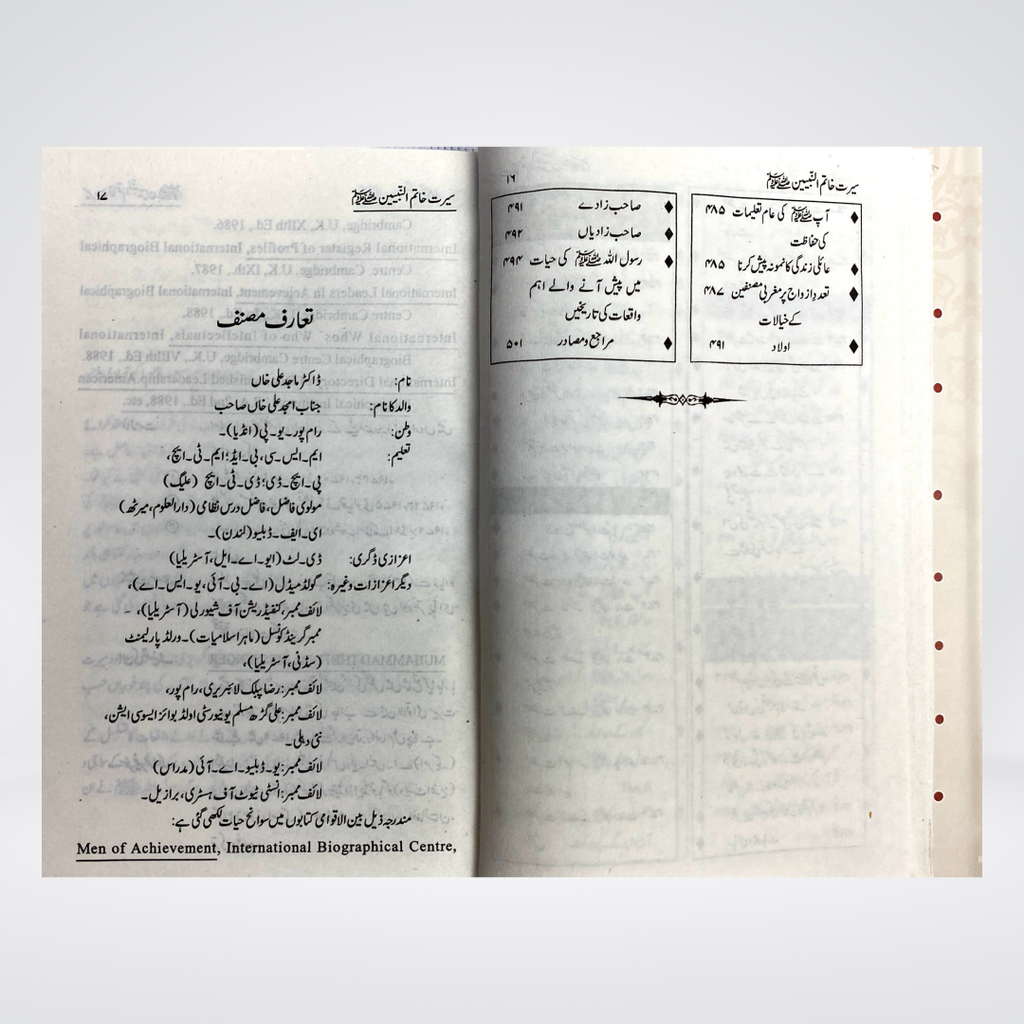 سیرت خاتم النّبیین ﷺ
۱۶
♦ آپ ﷺ کی عام تعلیمات ۴۸۵
کی حفاظت
♦ عائلی زندگی کا نمونہ پیش کرنا ۴۸۵
♦ تعددِ ازواج پر مغربی مصنفین ۴۸۷
کے خیالات
♦ اولاد ۴۹۱
♦ صاحب زادے ۴۹۱
♦ صاحب زادیاں ۴۹۲
♦ رسول اللہ ﷺ کی حیات ۴۹۴
میں پیش آنے والے اہم
واقعات کی تاریخیں
♦ مراجع و مصادر ۵۰۱
سیرت خاتم النّبیین ﷺ
۱۷
تعارف مصنف
نام: ڈاکٹر ماجد علی خاں
والد کا نام: جناب امجد علی خاں صاحب
وطن: رام پور۔ یو۔ پی (انڈیا)۔
تعلیم: ایم۔ ایس۔ سی، بی۔ ایڈ؛ ایم۔ ٹی۔ ایچ،
پی۔ ایچ۔ ڈی؛ ڈی۔ ٹی۔ ایچ (علیگ)
مولوی فاضل، فاضل درس نظامی (دارالعلوم، میرٹھ)
ای۔ ایف۔ ڈبلیو (لندن)۔
اعزازی ڈگری: ڈی۔ لٹ (ایو۔ اے۔ ایل، آسٹریلیا)
دیگر اعزازات وغیرہ: گولڈ میڈل (اے۔ بی۔ آئی، یو۔ ایس۔ اے)،
لائف ممبر، کنفیڈریشن آف شیورلی (آسٹریلیا)،
ممبر گرینڈ کونسل (ماہر اسلامیات)۔ ورلڈ پارلیمنٹ
(سڈنی، آسٹریلیا)،
لائف ممبر: رضا پبلک لائبریری، رام پور،
لائف ممبر: علی گڑھ مسلم یونیورسٹی اولڈ بوائز ایسوسی ایشن،
نئی دہلی۔
لائف ممبر: یو۔ ڈبلیو۔ اے۔ آئی (مدراس)
لائف ممبر: انسٹی ٹیوٹ آف ہسٹری، برازیل۔
مندرجہ ذیل بین الاقوامی کتابوں میں سوانح حیات لکھی گئی ہے:
Men of Achievement, International Biographical Centre,